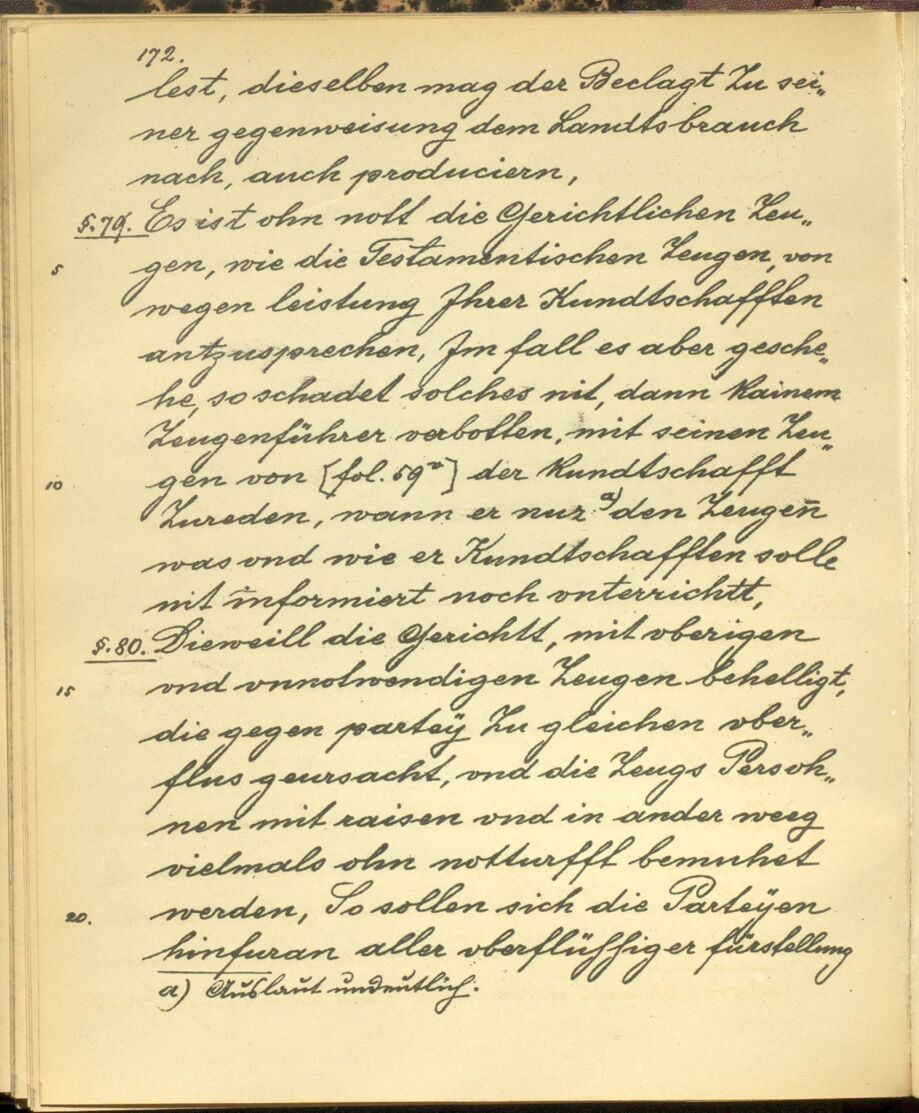 172.
lest, dieselben mag der Beclagt Zu sei„
ner gegenweisung dem Landtsbrauch
nach, auch produciern,
§.79. Es ist ohn nott die Gerichtlichen Zeu„
5 gen, wie die Testamentischen Zeugen, von
wegen leistung Jhrer Kundtschafften
antzusprechen, Jm fall es aber gesche„
he, so schadet solches nit, dann kainem
Zeugenführer verbotten, mit seinen Zeu„
10 gen von [fol. 59v] der Kundtschafft
Zureden, wann er nur a) den Zeugen̄
was vnd wie er Kundtschafften solle
nit informiert noch vnterrichtt,
§.80. Dieweill die Gerichtt, mit vberigen
15 vnd vnnotwendigen Zeugen behelligt,
die gegen parteÿ Zu gleichen vber„
flus geursacht, vnd die Zeugs Persoh„
nen mit raisen vnd in ander weeg
vielmals ohn notturfft bemuhet
20. werden, So sollen sich die Parteÿen
hinfuran aller vberflüssiger fürstellung
a) Auslaut undeutlich.